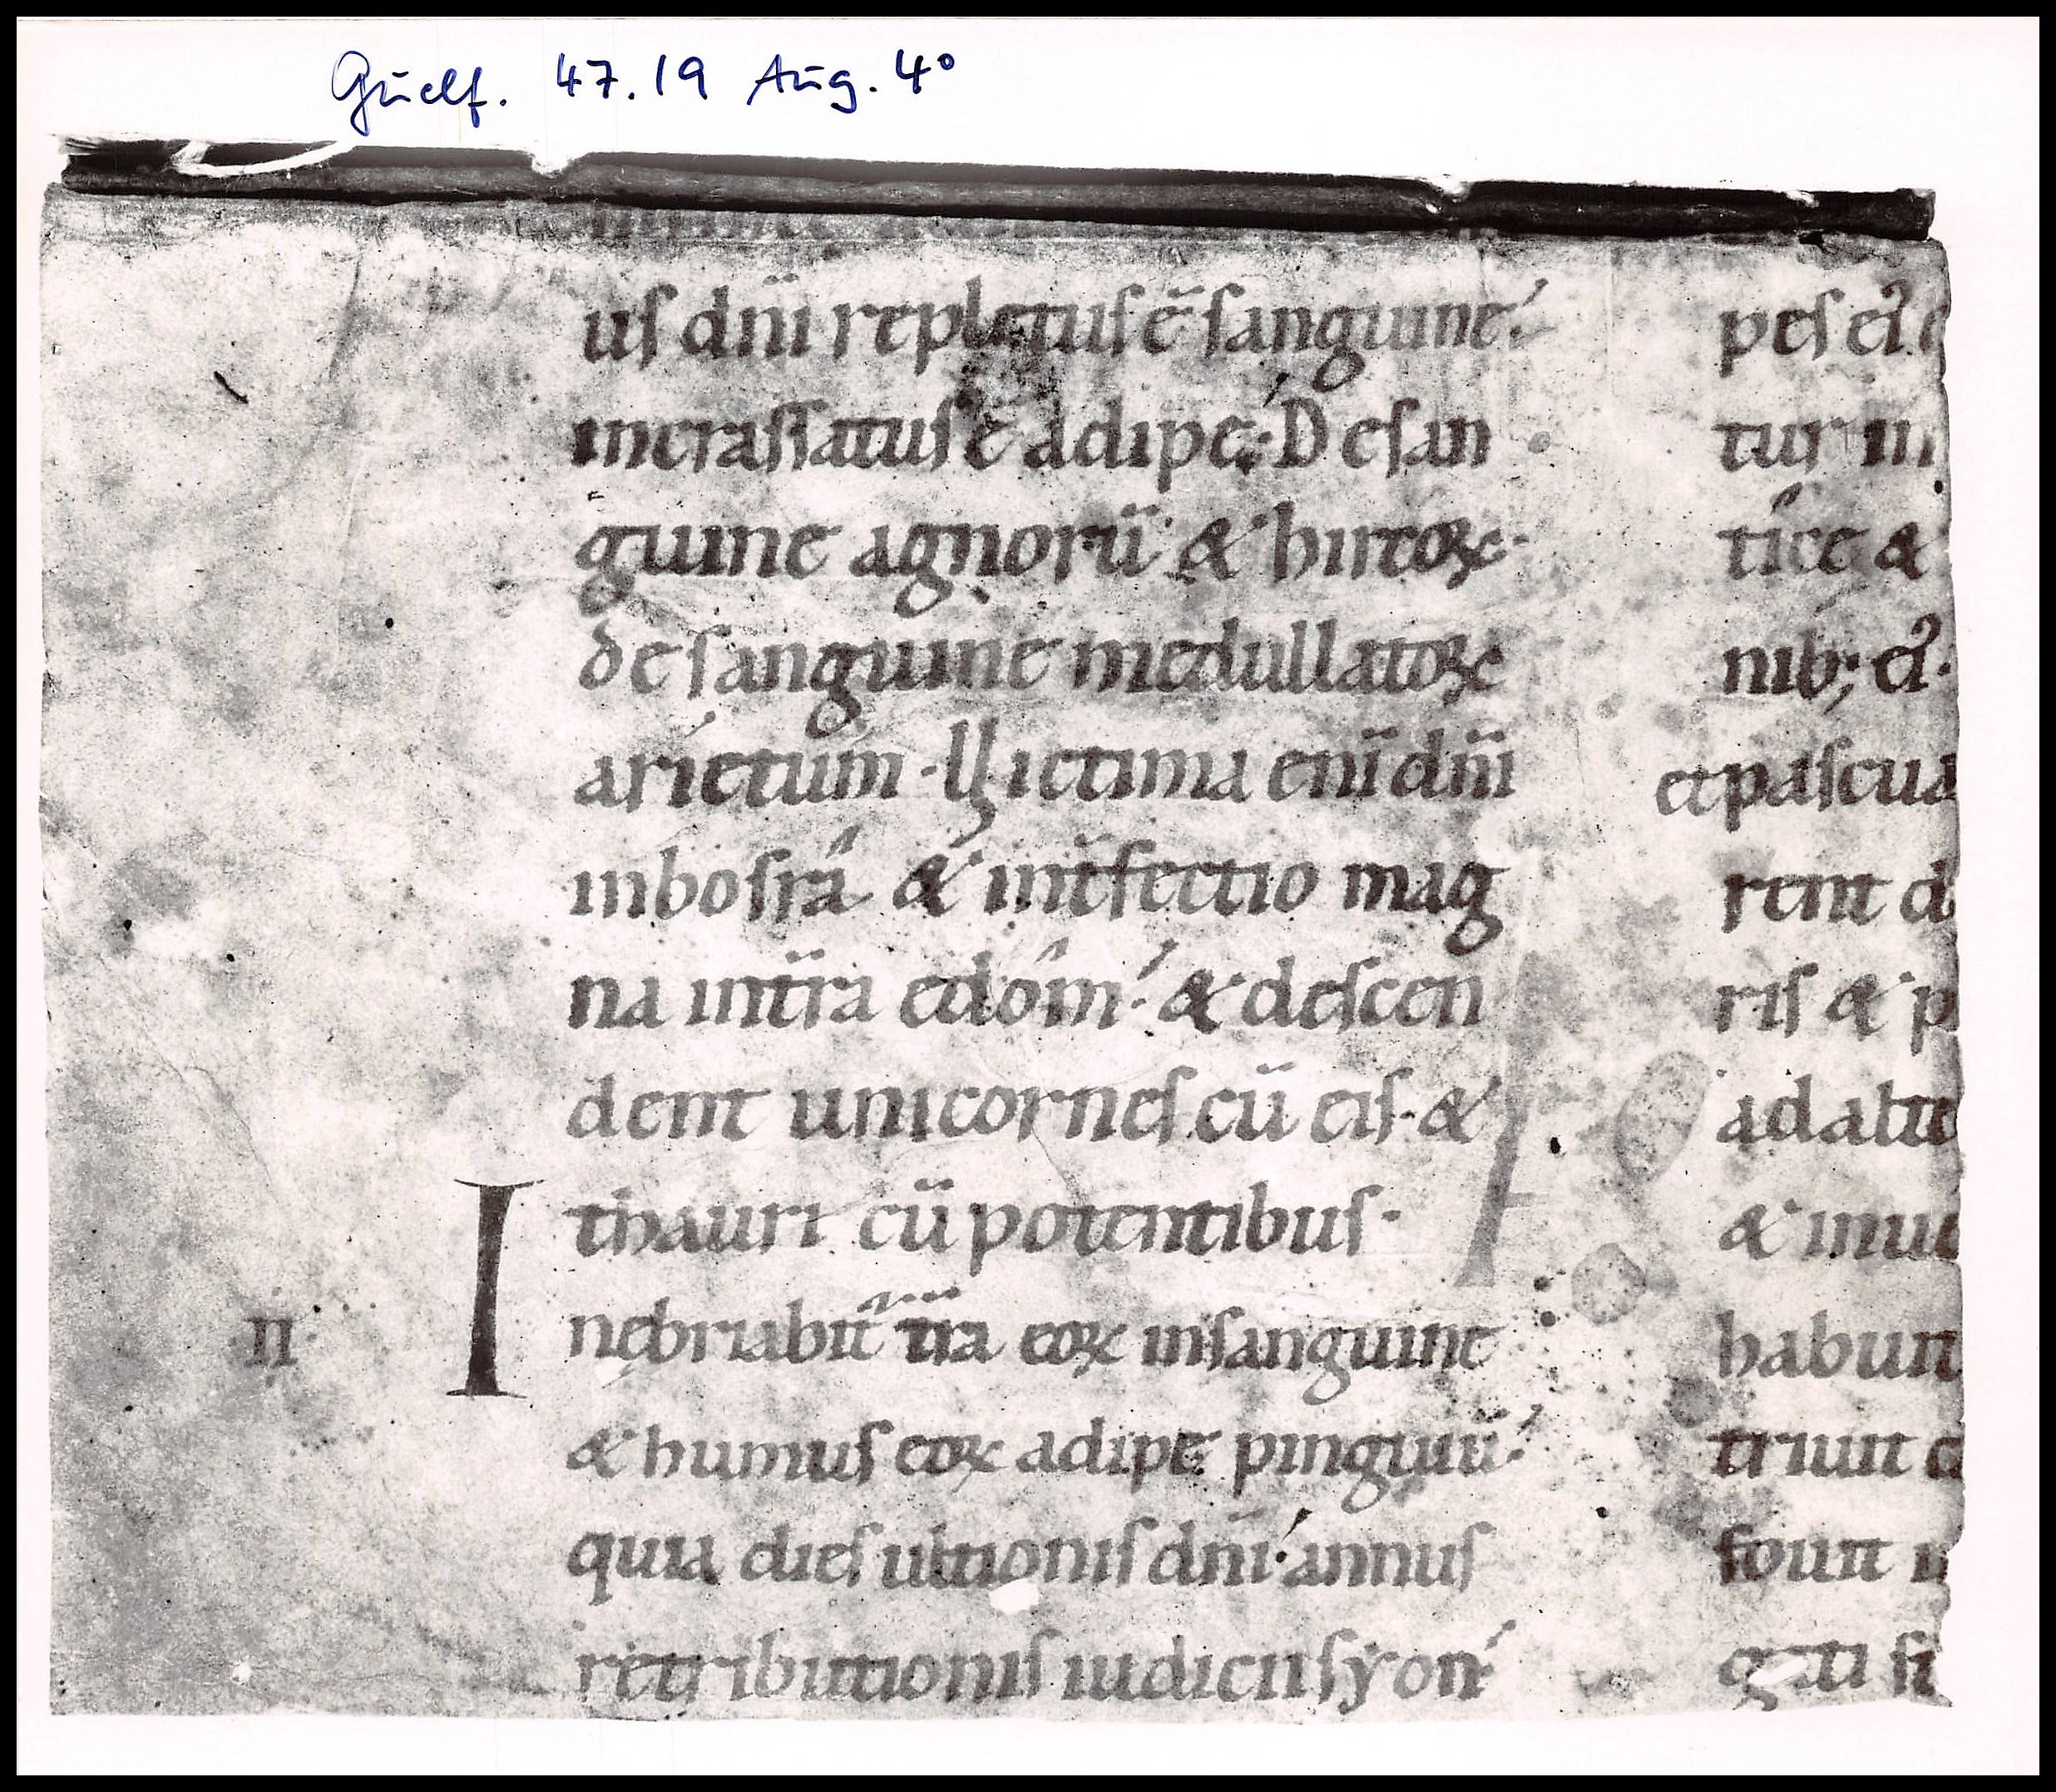 Guelf. 47.19 Aug. 4°
uſ dn̄i repletuſ ē ſanguine·
incraſſatuſ ē adipe; De ſan
guine agnorū & hircoꝝ·
de ſanguine medullatoꝝ
arietum· Uictima enī dn̄i
in boſrā & int̄fectio mag
na in tr̄a edóm· & deſcen
dent unicorneſ cū eiſ· &
thauri cū potentibuſ·
n
Inębriabit̄ tr̄a eoꝝ in ſanguine
& humuſ eoꝝ adipe pinguiū·
quia dieſ ultioniſ dn̄i· annuſ
retributioniſ iudicii ſẏon
peſ ei᾽
tur in
tice &
nib; ei᾽·
et paſcua
rent d
riſ & p
ad alte
& inue
habunt
ti ſunt